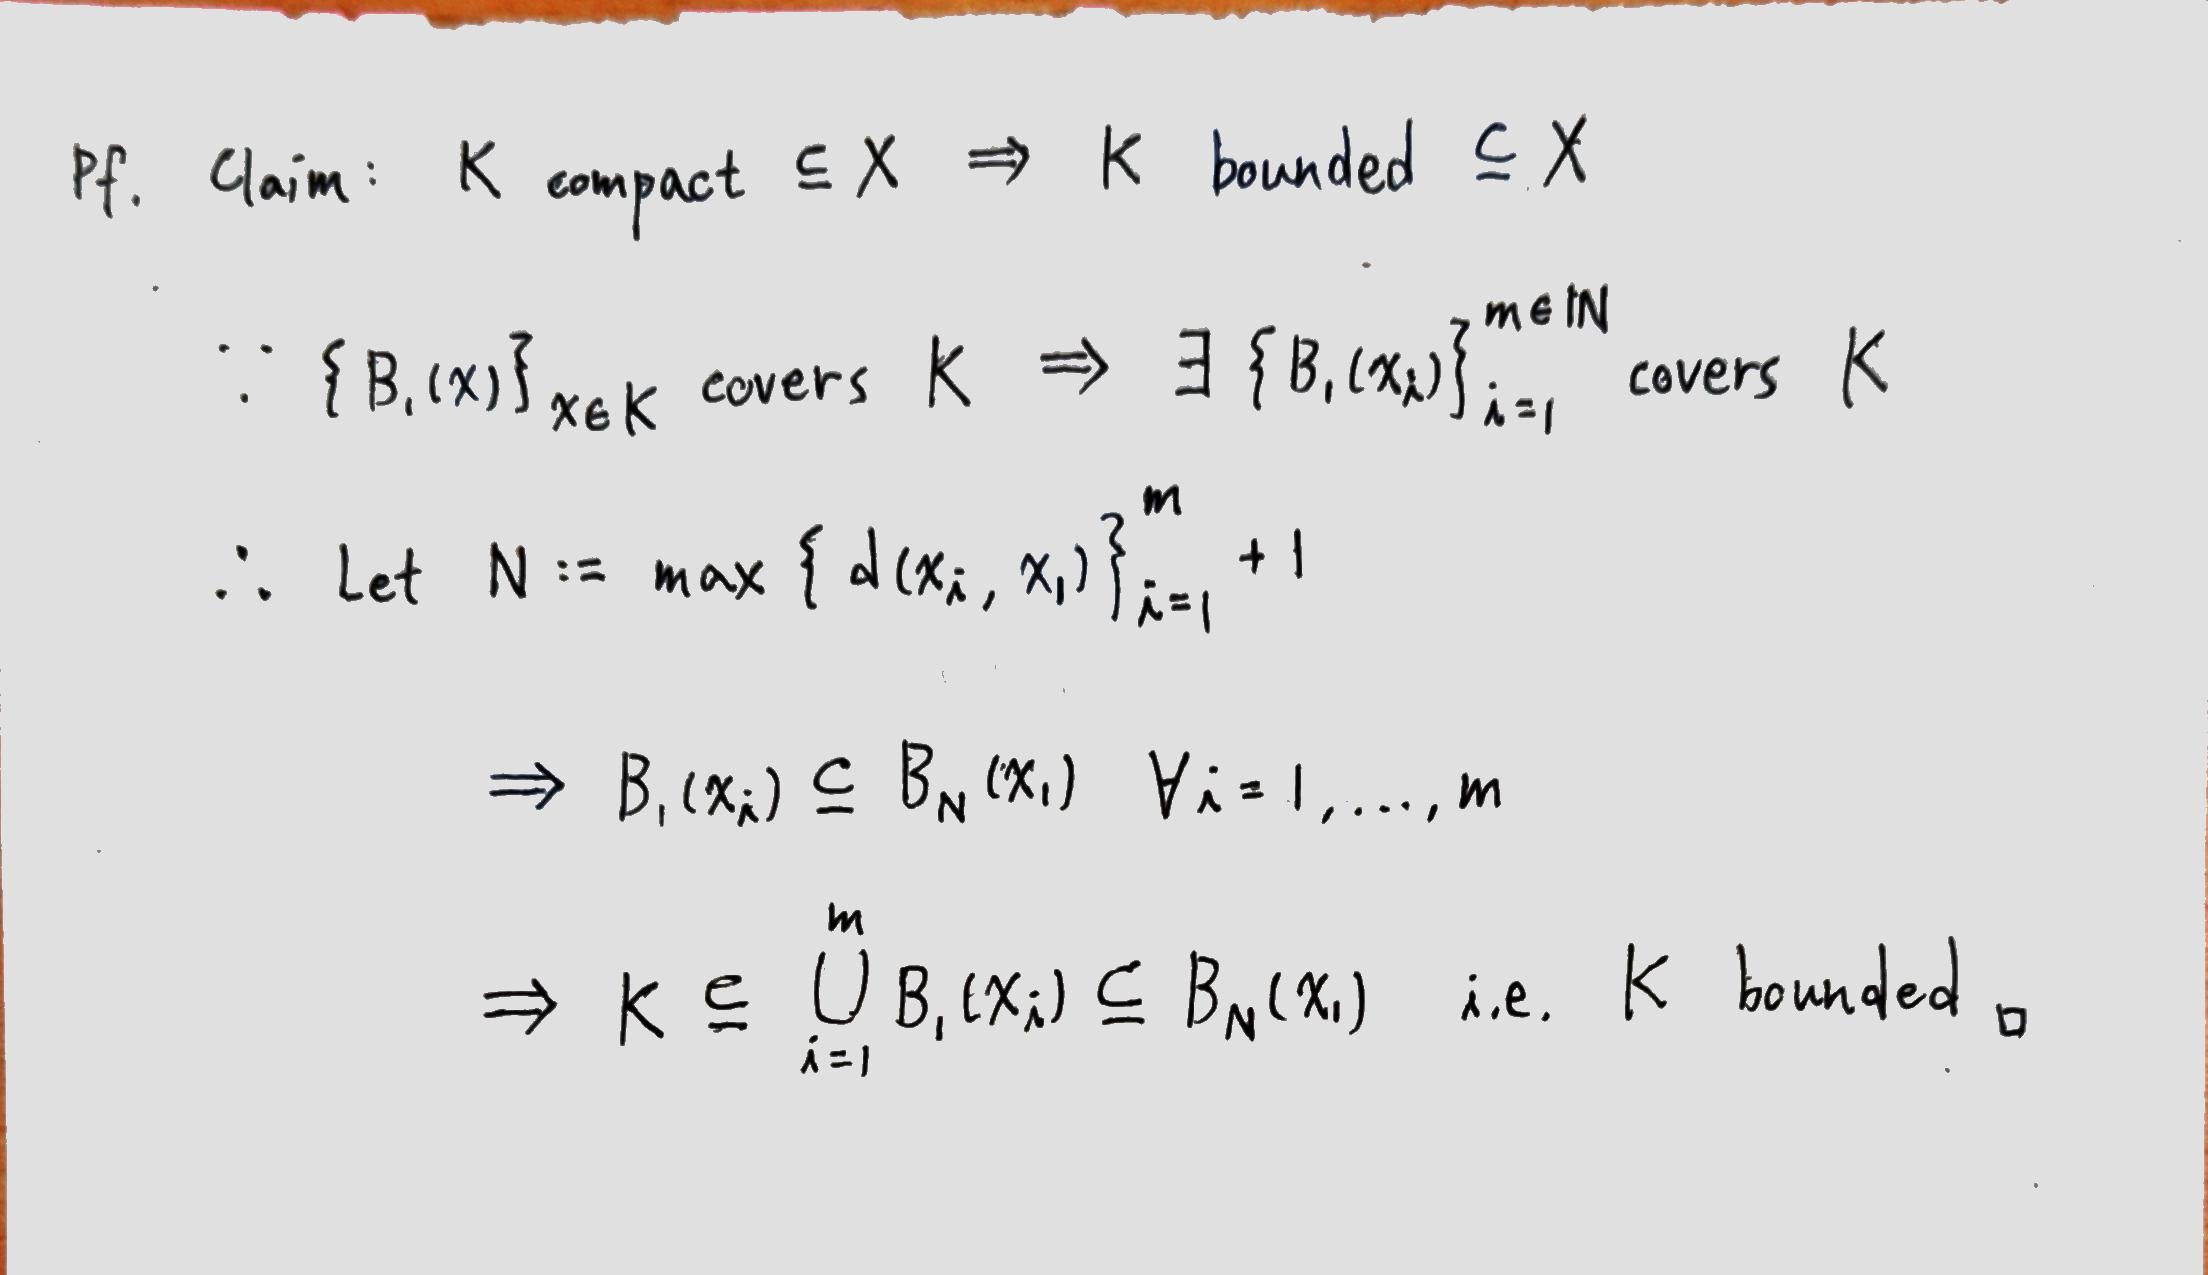 Pf. Claim: K compact ⊆ X ⇒ K bounded ⊆ X
∵ {B₁(x)}_{x∈K} covers K ⇒ ∃ {B₁(xᵢ)}_{i=1}^{m∈ℕ} covers K
∴ Let N := max {d(xᵢ, x₁)}_{i=1}^{m} + 1
⇒ B₁(xᵢ) ⊆ B_N(x₁) ∀i = 1, ..., m
⇒ K ⊆ ⋃_{i=1}^{m} B₁(xᵢ) ⊆ B_N(x₁) i.e. K bounded □